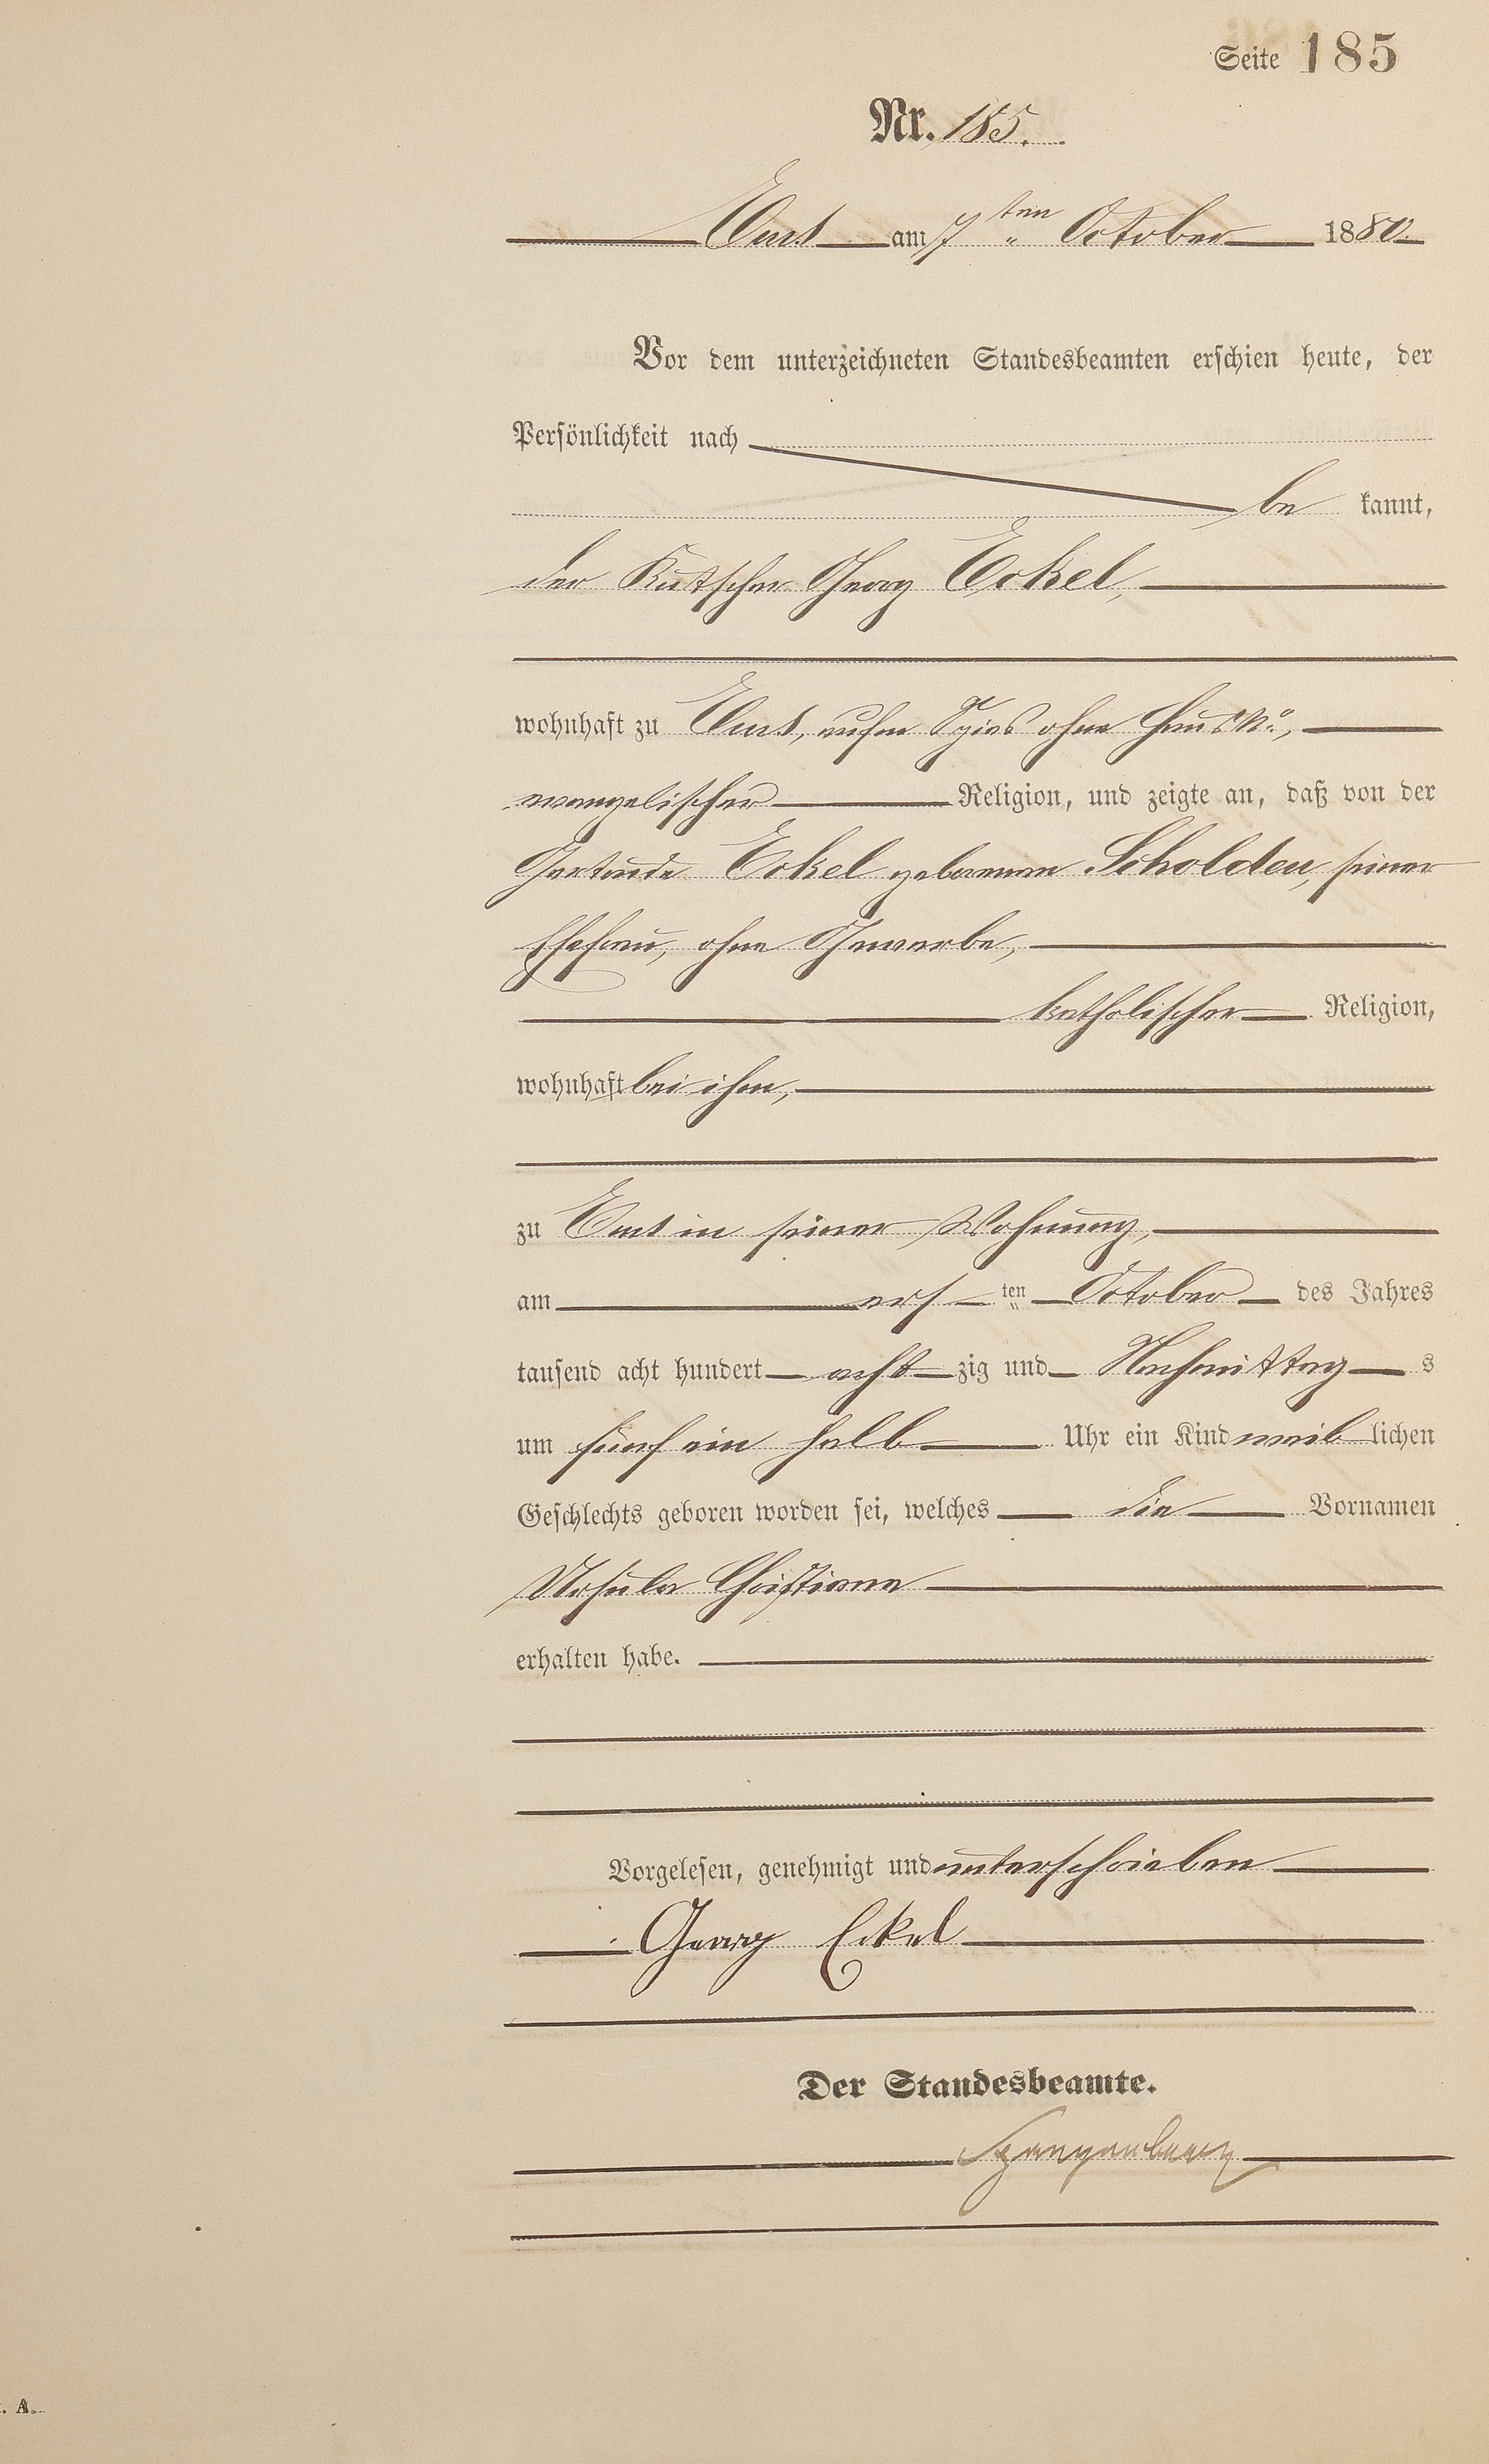 Seite 185
Nr. 185.
Ems am 7ten October 1880.
Vor dem unterzeichneten Standesbeamten erschien heute, der
Persönlichkeit nach
be kannt,
der Kutscher Georg Eckel,
wohnhaft zu Ems, aufm Spies ohne Haus No.,
evangelischer Religion, und zeigte an, daß von der
Gertrude Eckel geborenen Scholden, seiner
Ehefrau, ohne Gewerbe,
katholischer Religion,
wohnhaft bei ihm,
zu Ems in seiner Wohnung,
am ers ten October des Jahres
tausend acht hundert acht zig und Nachmittag s
um fünf ein halb Uhr ein Kind weib lichen
Geschlechts geboren worden sei, welches die Vornamen
Ursula Christiane
erhalten habe.
Vorgelesen, genehmigt und unterschrieben
Georg Eckel
Der Standesbeamte.
Spangenberg
. A.